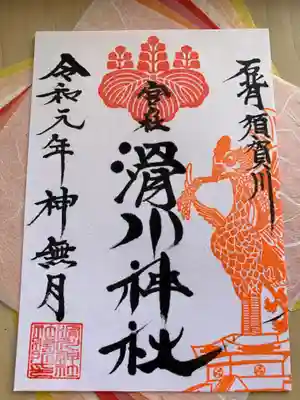 石背須賀川
宮社
滑川神社
令和元年神無月